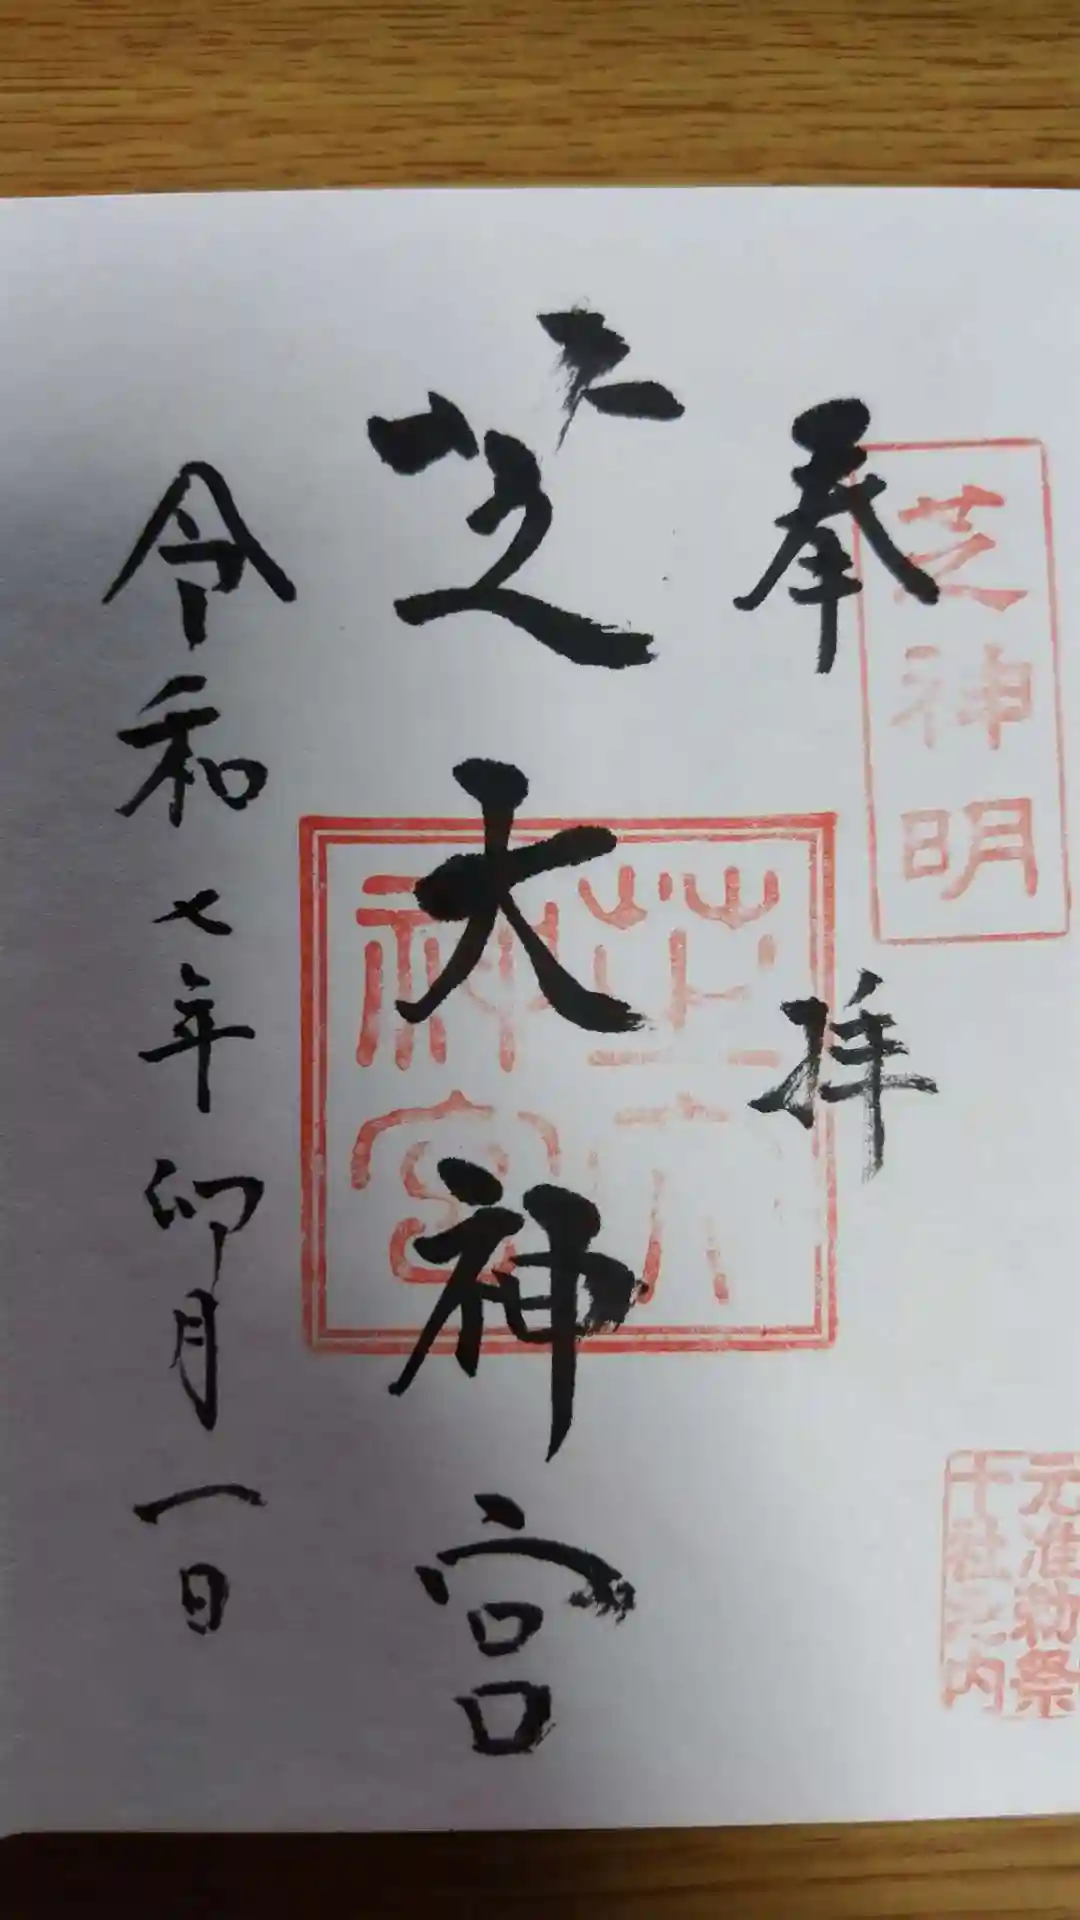 奉拝
芝神明
元准勅祭
十社之内
芝大神宮
芝大
神宮
令和七年卯月一日